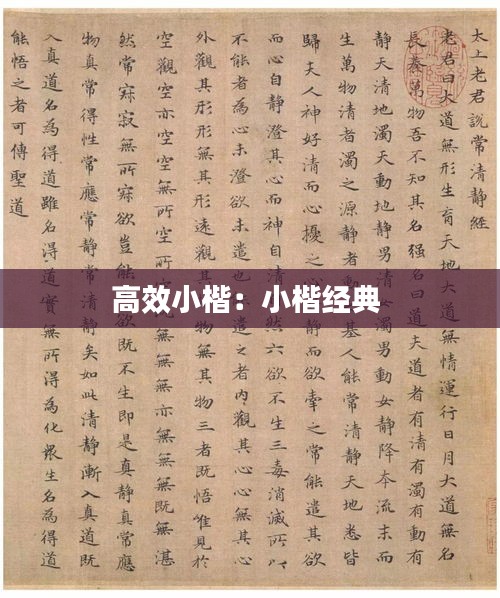 太上老君說常清靜經
老君曰大道無形生育天地無情運行日月大道無名
長養萬物吾不知其名強名夫道者有清有濁有動有
靜天清地濁天動地靜男濁男動女靜降本流末而
生萬物清者濁之源靜者基人能常清靜天地悉皆
歸夫人神好清而心擾之靜而欲牽之常能遣其欲
而心自靜澄其心而神自然六欲不生三毒消滅所以
不能者為心未澄欲未遣也之者內觀其心心無其心
外觀其形形無其形遠觀其無其物三者既悟唯見於
空觀空亦空空無所空無無亦無無無既無湛
然常寂寂無所寂欲豈能既不生即是真靜真常應
物真常得性常應常靜常靜矣如此清靜漸入真道既
入真道名為得道雖名得道實無所得為化衆生名為得道
能悟之者可傳聖道
高效小楷：小楷经典